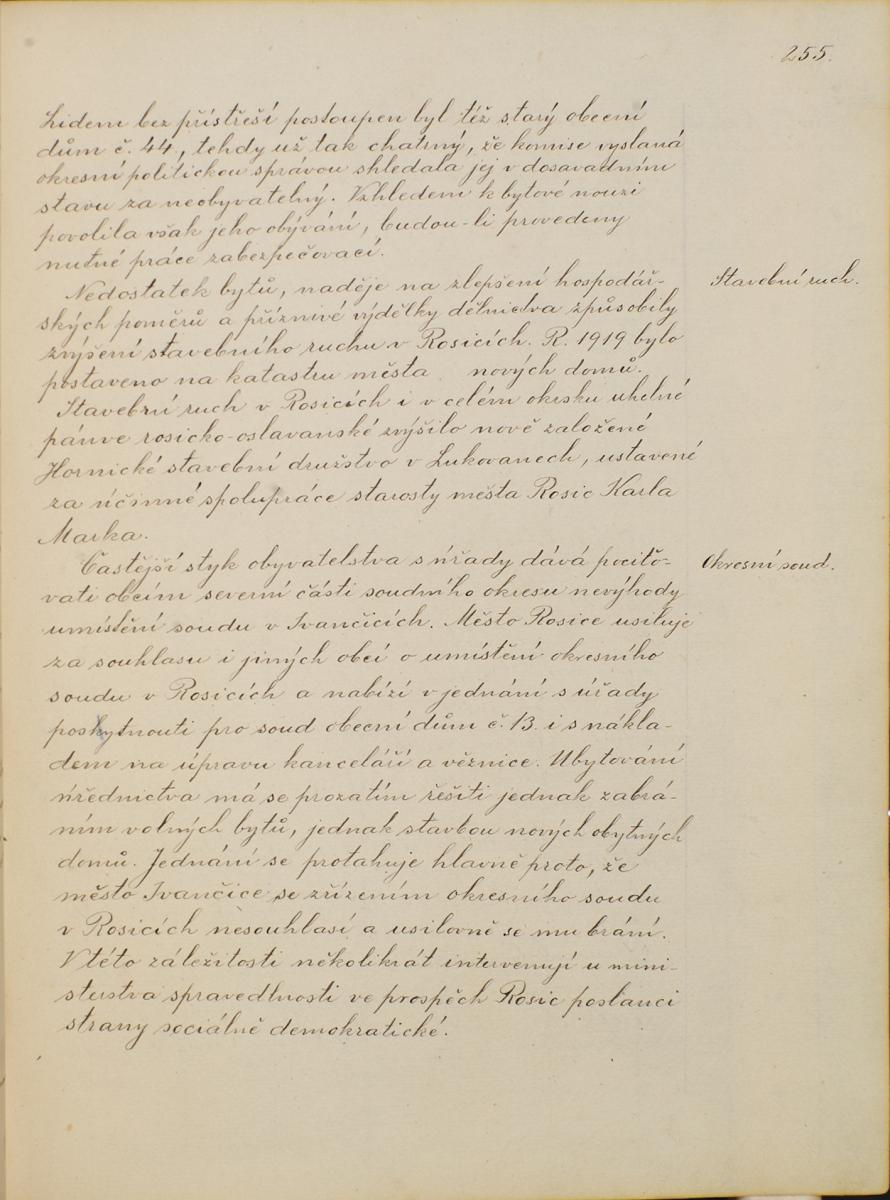 255.
Lidem bez přístřeší postoupen byl též starý obecní
dům č. 44, tehdy už tak chatrný, že komise vyslaná
okresní politickou správou shledala jej v dosavadním
stavu za neobyvatelný. Vzhledem k bytové nouzi
povolila však jeho obývání, budou-li provedeny
nutné práce zabezpečovací.
Nedostatek bytů, naděje na zlepšení hospodář-
Stavební ruch.
ských poměrů a příznivé výdělky dělnictva způsobily
zvýšení stavebního ruchu v Rosicích. R. 1919 bylo
postaveno na katastru města nových domů.
Stavební ruch v Rosicích i v celém okrsku uhelné
pánve rosicko-oslavanské zvýšilo nově založené
Hornické stavební družstvo v Lukovanech, ustavené
za účinné spolupráce starosty města Rosic Karla
Marka.
Častější styk obyvatelstva s úřady dává pociťo-
Okresní soud.
vati obcím severní části soudního okresu nevýhody
umístění soudu v Ivančicích. Město Rosice usiluje
za souhlasu i jiných obcí o umístění okresního
soudu v Rosicích a nabízí v jednání s úřady
poskytnouti pro soud obecní dům č. 13 i s nákla-
dem na úpravu kanceláří a věznice. Ubytování
úřednictva má se prozatím řešiti jednak zabrá-
ním volných bytů, jednak stavbou nových obytných
domů. Jednání se protahuje hlavně proto, že
město Ivančice se zřízením okresního soudu
v Rosicích nesouhlasí a usilovně se mu brání.
V této záležitosti několikrát intervenují u mini-
sterstva spravedlnosti ve prospěch Rosic poslanci
strany sociálně demokratické.